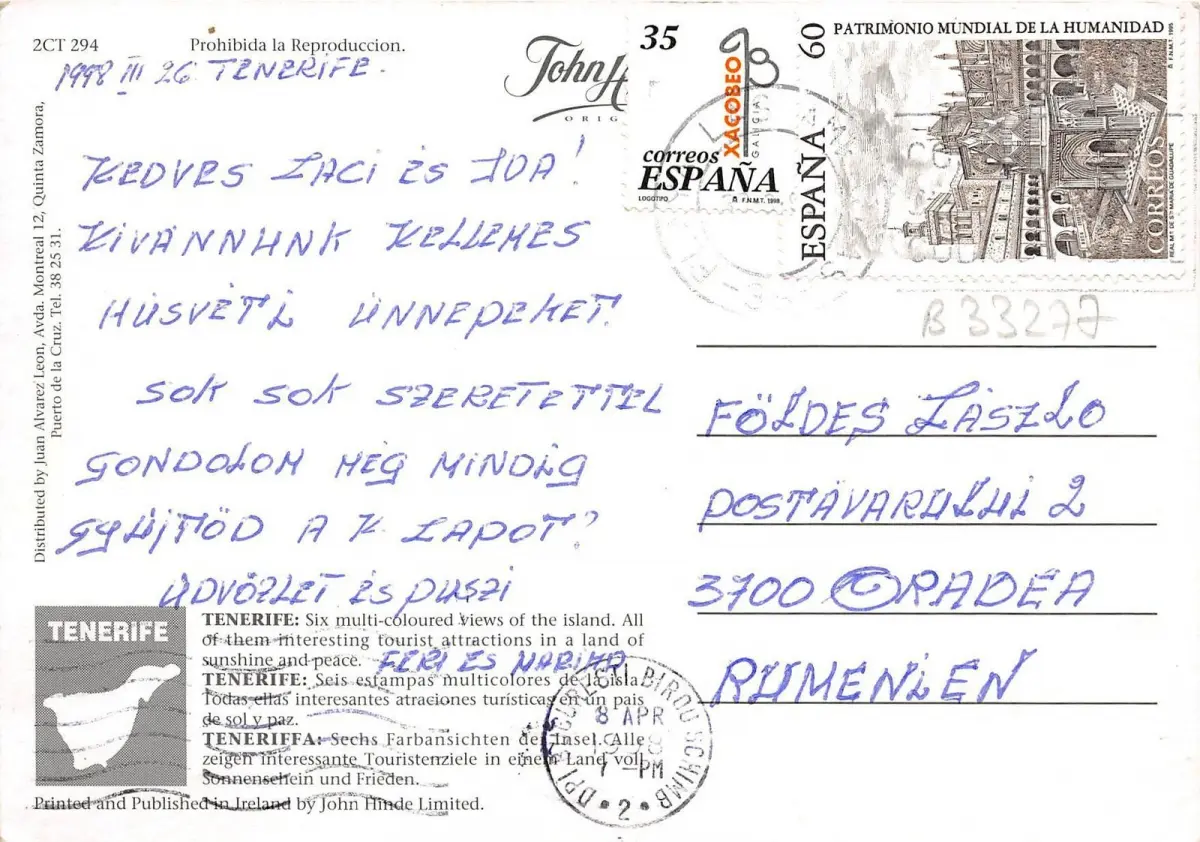 2CT 294 Prohibida la Reproduccion.
1998 III 26 TENERIFE.
John H
ORIG
KEDVES LACI ÉS IDA!
KIVÁNNUNK KELLEMES
HÚSVÉTI ÜNNEPEKET.
SOK SOK SZERETETTEL
GONDOLOM MÉG MINDIG
GYŰJTÖD A K. LAPOT?
ÜDVÖZLET ÉS PUSZI
FERI ÉS MARIKA
Distributed by Juan Alvarez Leon, Avda. Montreal 12, Quinta Zamora,
Puerto de la Cruz. Tel. 38 25 31.
35
XACOBEO
GALICIA
correos
ESPAÑA
LOGOTIPO F.N.M.T. 1998
60 PATRIMONIO MUNDIAL DE LA HUMANIDAD
ESPAÑA
CORREOS
REAL MTº DE Sª MARIA DE GUADALUPE
F.N.M.T. 1995
B 33277
FÖLDES LÁSZLO
POSTÁVARULUI 2
3700 ORADEA
RUMENIEN
TENERIFE
TENERIFE: Six multi-coloured views of the island. All
of them interesting tourist attractions in a land of
sunshine and peace.
TENERIFE: Seis estampas multicolores de la isla.
Todas ellas interesantes atraciones turísticas en un pais
de sol y paz.
TENERIFFA: Sechs Farbansichten der Insel. Alle
zeigen interessante Touristenziele in einem Land voll
Sonnenschein und Frieden.
Printed and Published in Ireland by John Hinde Limited.
DPI BUCURESTI BIROU SCHIMB
8 APR
1998
7-PM
2